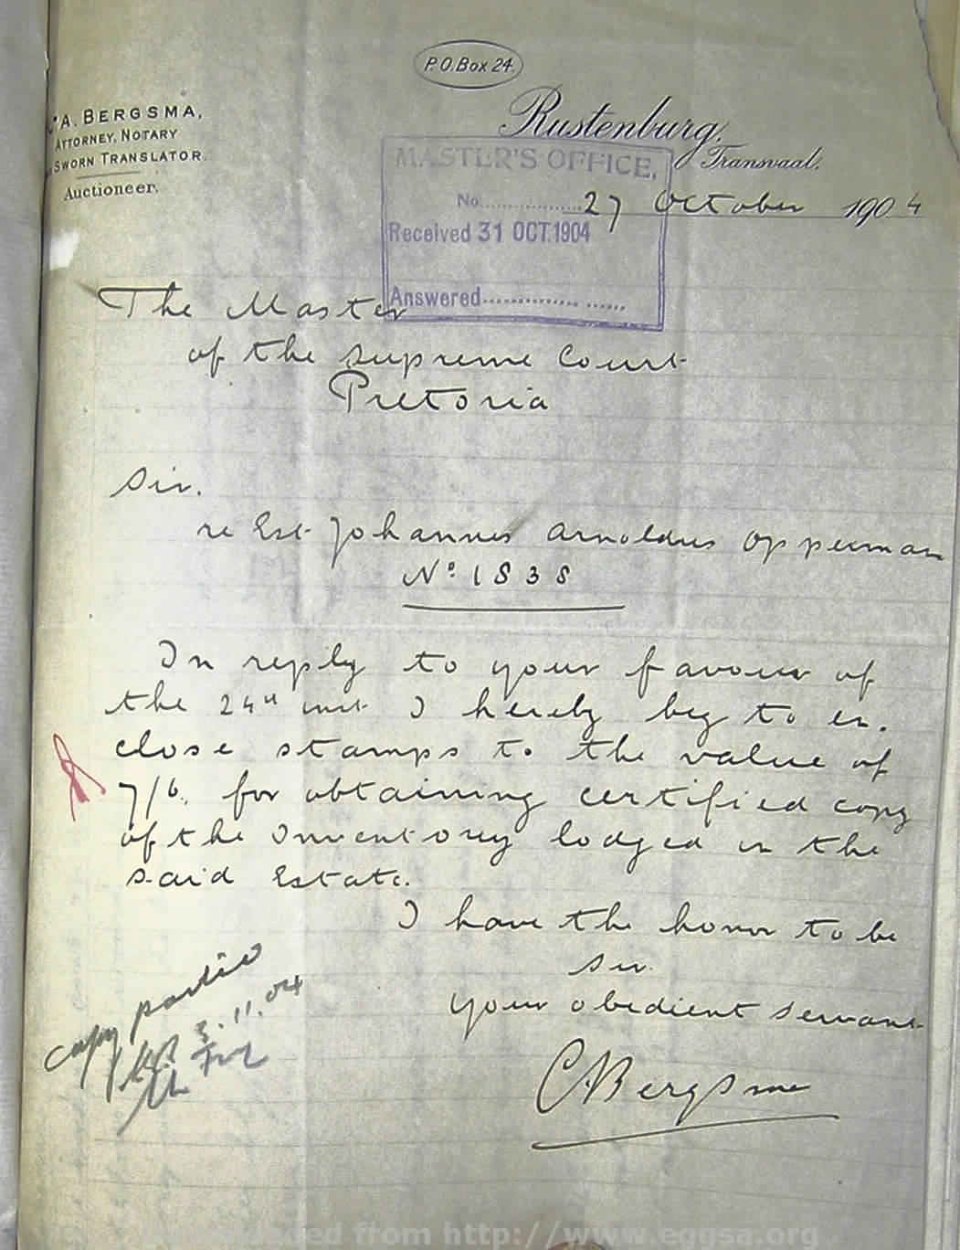 P.O.Box 24.
A. BERGSMA,
ATTORNEY, NOTARY
SWORN TRANSLATOR.
Auctioneer.
Rustenburg,
Transvaal.
MASTER'S OFFICE,
No.
27 October 1904
Received 31 OCT.1904
Answered
The Master
of the Supreme Court
Pretoria
Sir.
re Est. Johannes Arnoldus Opperman
No. 1838
In reply to your favour of
the 24th inst I hereby beg to en.
close stamps to the value of
7/6, for obtaining certified copy
of the Inventory lodged in the
said Estate.
I have the honor to be
Sir.
your obedient servant
C.A.Bergsma
copy
3.11.04
from http://www.eggsa.org